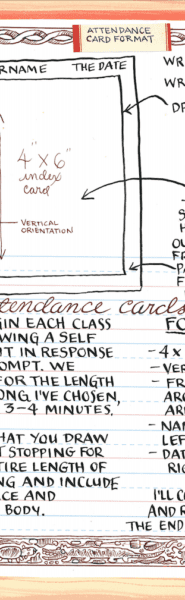 ATTENDANCE
CARD FORMAT
RNAME THE DATE
4" x 6"
index
card
VERTICAL
ORIENTATION
WR
WR
DR
S
H
OU
FR
PA
F
tendance cards
GIN EACH CLASS
WING A SELF
IT IN RESPONSE
OMPT. WE
FOR THE LENGTH
ONG I'VE CHOSEN,
3-4 MINUTES.
HAT YOU DRAW
T STOPPING FOR
TIRE LENGTH OF
NG AND INCLUDE
CE AND
BODY.
FO
- 4 x
- VER
- FR
ARO
AR
- NAM
LEF
- DAT
RIG
I'LL C
AND R
THE END